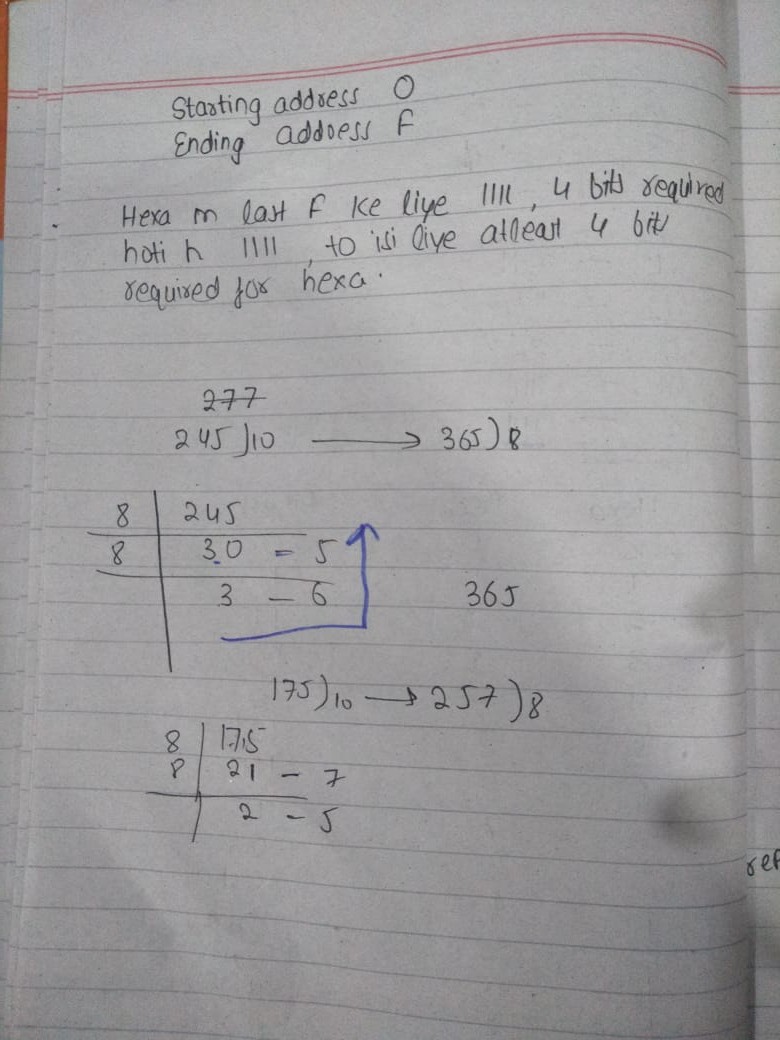 Starting address 0
Ending address F
Hexa m last F ke liye 1111, 4 bits required
hoti h 1111, to isi liye atleast 4 bit
required for hexa.
277
245)10 → 365)8
8 245
8 30 - 5
3 - 6 365
175)10 → 257)8
8 175
8 21 - 7
2 - 5